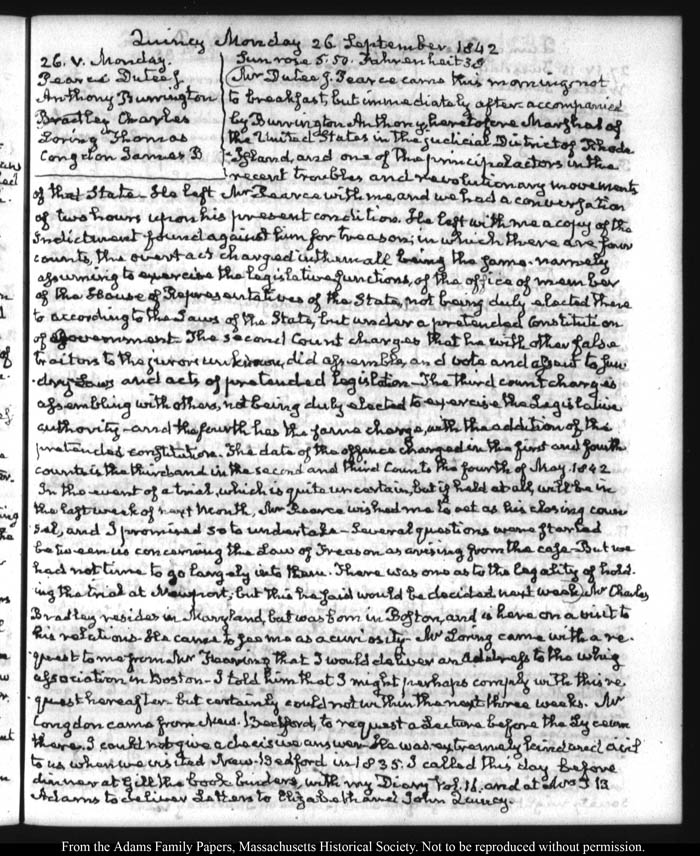 Quincy Monday 26 September 1842
26. V. Monday.
Pearce Dutee J
Anthony Burrington
Bradley Charles
Loring Thomas
Congdon James B
Sun rose 5.50. Fahrenheit 38
Mr Dutee J. Pearce came this morning, not
to breakfast, but immediately after accompanied
by Burrington Anthony, heretofore Marshal of
the United States in the judicial District of Rhode
Island, and one of the principal actors in the
recent troubles and revolutionary movements
of that State. He left Mr Pearce with me, and we had a conversation
of two hours upon his present condition. He left with me a copy of the
Indictment found against him for treason; in which there are four
counts, the overt act charged in them all being the same. namely
assuming to exercise the legislative functions, of the office of member
of the House of Representatives of the State, not being duly elected there
to according to the Laws of the State, but under a pretended Constitution
of Government. The second Count charges that he with other false
traitors to the jurors unknown, did assemble, and vote and assent to sun
dry Laws and acts of pretended legislation. The third count charges
assembling with others, not being duly elected to exercise the Legislative
authority. and the fourth has the same charge, with the addition of the
pretended constitution. The date of the offence charged in the first and fourth
counts is the third and in the second and third Counts the fourth of May 1842
In the event of a trial, which is quite uncertain, but if held at all, will be in
the last week of next Month, Mr Pearce wished me to act as his closing coun
sel, and I promised so to undertake. Several questions were started
between us concerning the Law of Treason as arising from the case. But we
had not time to go largely into them. There was one as to the legality of hold-
ing the trial at Newport; but this he said would be decided next week. Mr Charles
Bradley resides in Maryland, but was born in Boston, and is here on a visit to
his relations. He came to see me as a curiosity. Mr Loring came with a re-
quest to me from Mr that I would deliver an Address to the whig
association in Boston. I told him that I might perhaps comply with this re-
quest hereafter but certainly could not within the next three weeks. Mr
Congdon came from New-Bedford, to request a Lecture before the Lyceum
there. I could not give a decisive answer. He was extremely kind and civil
to us when we visited New-Bedford in 1835. I called this day before
dinner at Gill the book binders, with my Diary Vol. 16. and at Mrs T B
Adams to deliver Letters to Elizabeth and John Quincy.
From the Adams Family Papers, Massachusetts Historical Society. Not to be reproduced without permission.